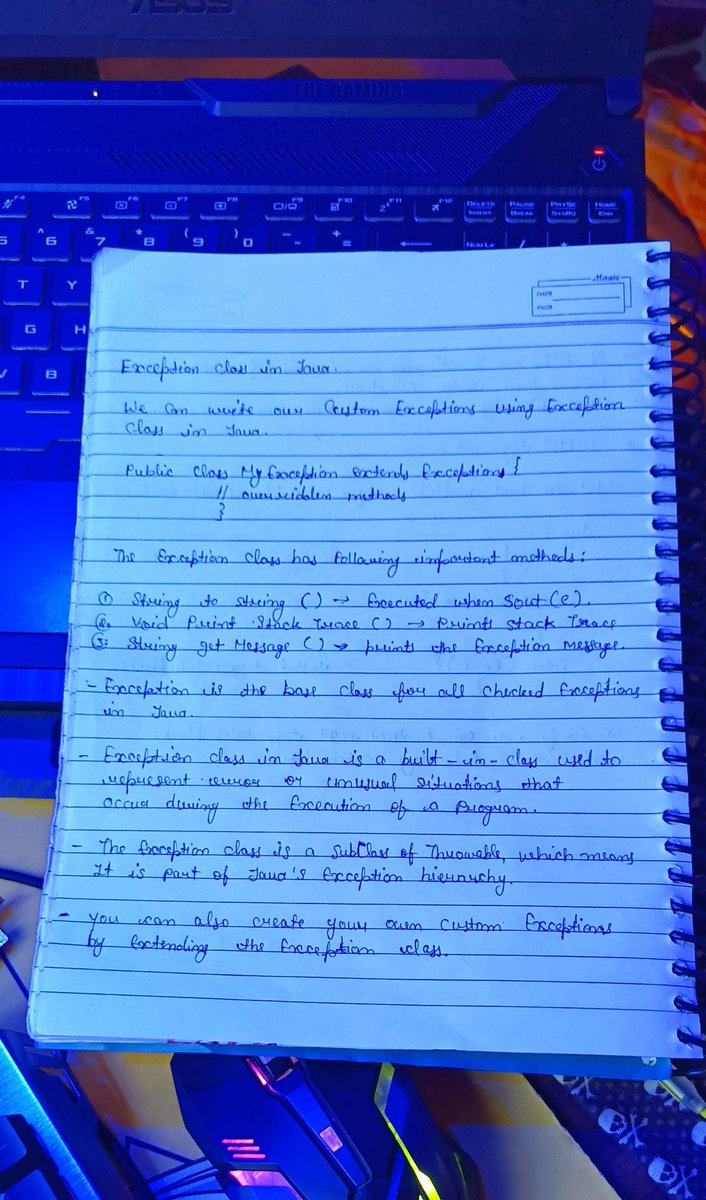 ASUS
TUF GAMING
F4 F5 F6 F7 F8 F9 F10 F11 F12 DELETE INSERT PAUSE BREAK PRTSC SYSRQ HOME END
5 ^ 6 & 7 * 8 ( 9 ) 0 - + = NUM LK / *
T Y
G H
V B
Magic
DATE
PAGE
Exception class in Java.
We can write our Custom Exceptions using Exception
Class in Java.
Public Class My Exception extends Exceptions {
// overridden methods
}
The Exception class has following important methods:
① String to string () → Executed when Sout (e).
②. Void Print Stack Trace () → Prints Stack Trace
③. String get Message () → prints the Exception Message.
- Exception is the base class for all checked Exceptions
in Java.
- Exception class in Java is a built-in-class used to
represent error or unusual situations that
occur during the Execution of a Program.
- The Exception class is a SubClass of Throwable, which means
It is part of Java's Exception hierarchy.
- You can also create your own custom Exceptions
by Extending the Exception class.